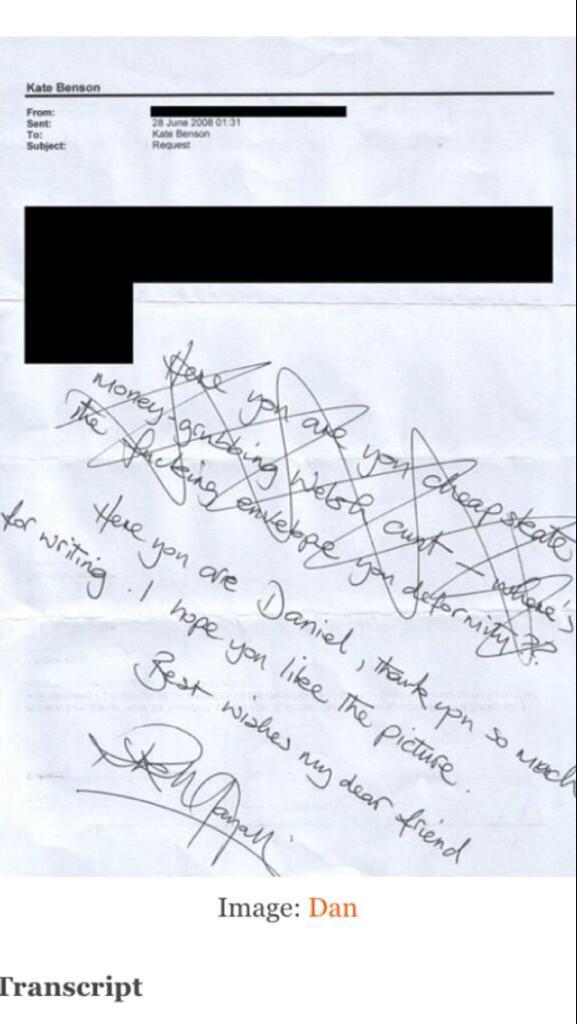 Kate Benson
From:
Sent: 28 June 2008 01:31
To: Kate Benson
Subject: Request
Here you are you cheapskate
money-grubbing Welsh cunt – where's
the fucking envelope you deformity??
Here you are Daniel, thank you so much
for writing. I hope you like the picture.
Best wishes my dear friend
Image: Dan
Transcript